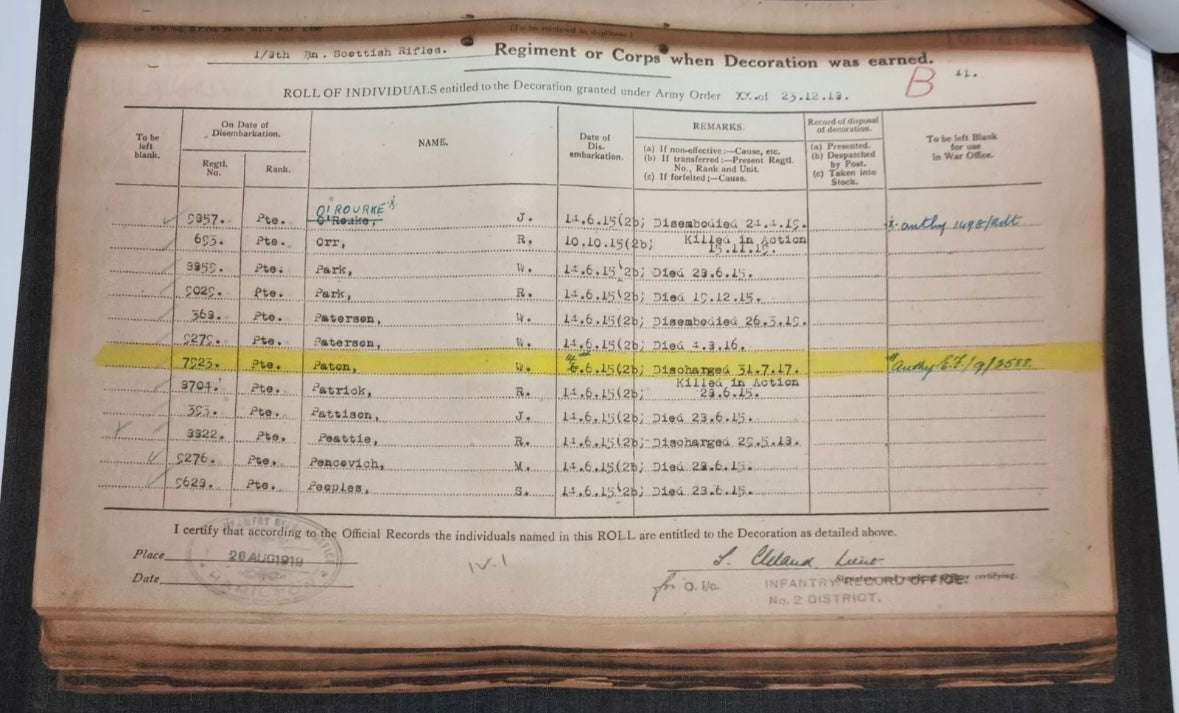 (To be rendered in duplicate.)
1/8th Bn. Scottish Rifles. Regiment or Corps when Decoration was earned.
B 41.
ROLL OF INDIVIDUALS entitled to the Decoration granted under Army Order XX. of 23.12.18.
To be left blank. On Date of Disembarkation. Regtl. No. Rank. NAME. Date of Disembarkation. REMARKS. (a) If non-effective:—Cause, etc. (b) If transferred:—Present Regtl. No., Rank and Unit. (c) If forfeited;—Cause. Record of disposal of decoration. (a) Presented. (b) Despatched by Post. (c) Taken into Stock. To be left Blank for use in War Office.
O'ROURKE
Pte. O'Rouke, J. 14.6.15(2b) Disembodied
693. Pte. Orr, R. 10.10.15(2b) Killed in Action
Pte. Park, W. 14.6.15(2b) Died 28.6.15.
Pte. Park, R. 14.6.15(2b) Died 19.12.15.
Pte. Paterson, W. 14.6.15(2b) Disembodied 26.3.19.
Pte. Paterson, W. 14.6.15(2b) Died
7923. Pte. Paton, W. 6.15(2b) Discharged 31.7.17.
Pte. Patrick, R. 14.6.15(2b) Killed in Action 28.6.15.
Pte. Pattison, J. 14.6.15(2b) Died 28.6.15.
Pte. Peattie, R. 14.6.15(2b) Discharged
9276. Pte. Pencevich, M. 14.6.15(2b) Died 28.6.15.
Pte. Peeples, S. 14.6.15(2b) Died 28.6.15.
I certify that according to the Official Records the individuals named in this ROLL are entitled to the Decoration as detailed above.
Place 26 AUG 1919
Date
IV.1
Cleland Lieut
for O. i/c.
Signature certifying.
INFANTRY RECORD OFFICE.
No. 2 DISTRICT.